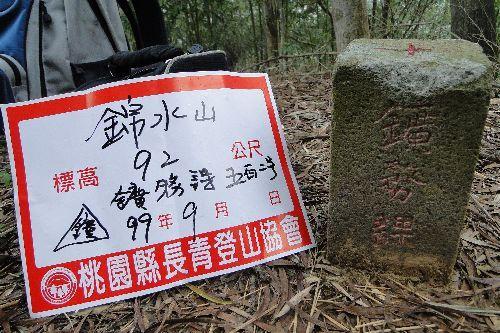 錦水山
標高 92 公尺
鑛務課 五百二号
鑛 99年9月 日
桃園縣長青登山協會
鑛務課